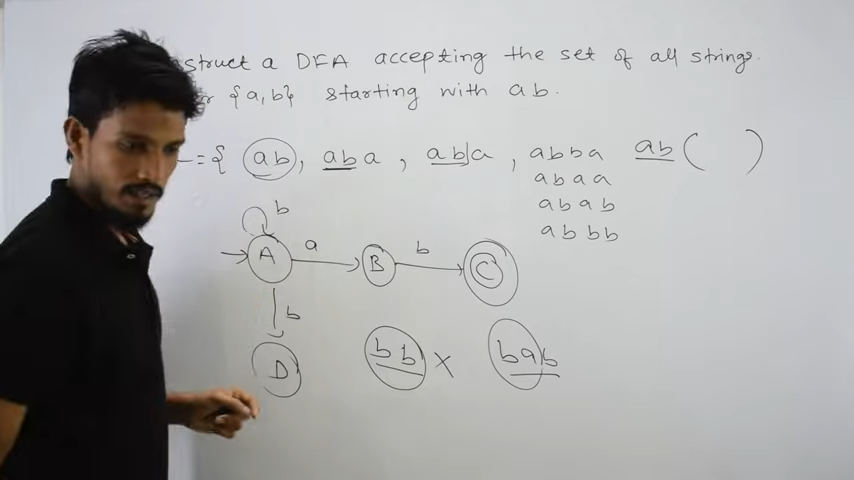 struct a DFA accepting the set of all strings.
r {a,b} starting with ab.
L = { ab, aba, abla, abba ab( )
abaa
abab
abbb
b
A a B b C
b
D bb X bab